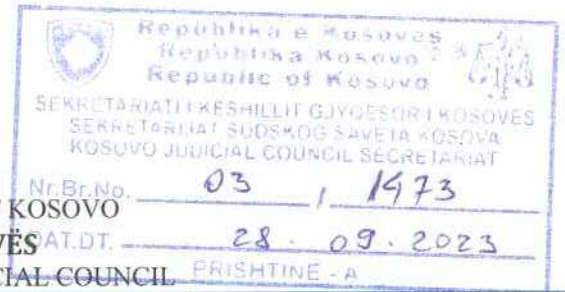 Republika e Kosovës
Republika Kosova
Republic of Kosovo
SEKRETARIATI I KËSHILLIT GJYQËSOR I KOSOVËS
SEKRETARIJAT SUDSKOG SAVETA KOSOVA
KOSOVO JUDICIAL COUNCIL SECRETARIAT
Nr.Br.No. 03 / 1973
KOSOVO
VËS DAT.DT. 28. 09. 2023
CIAL COUNCIL PRISHTINE - A